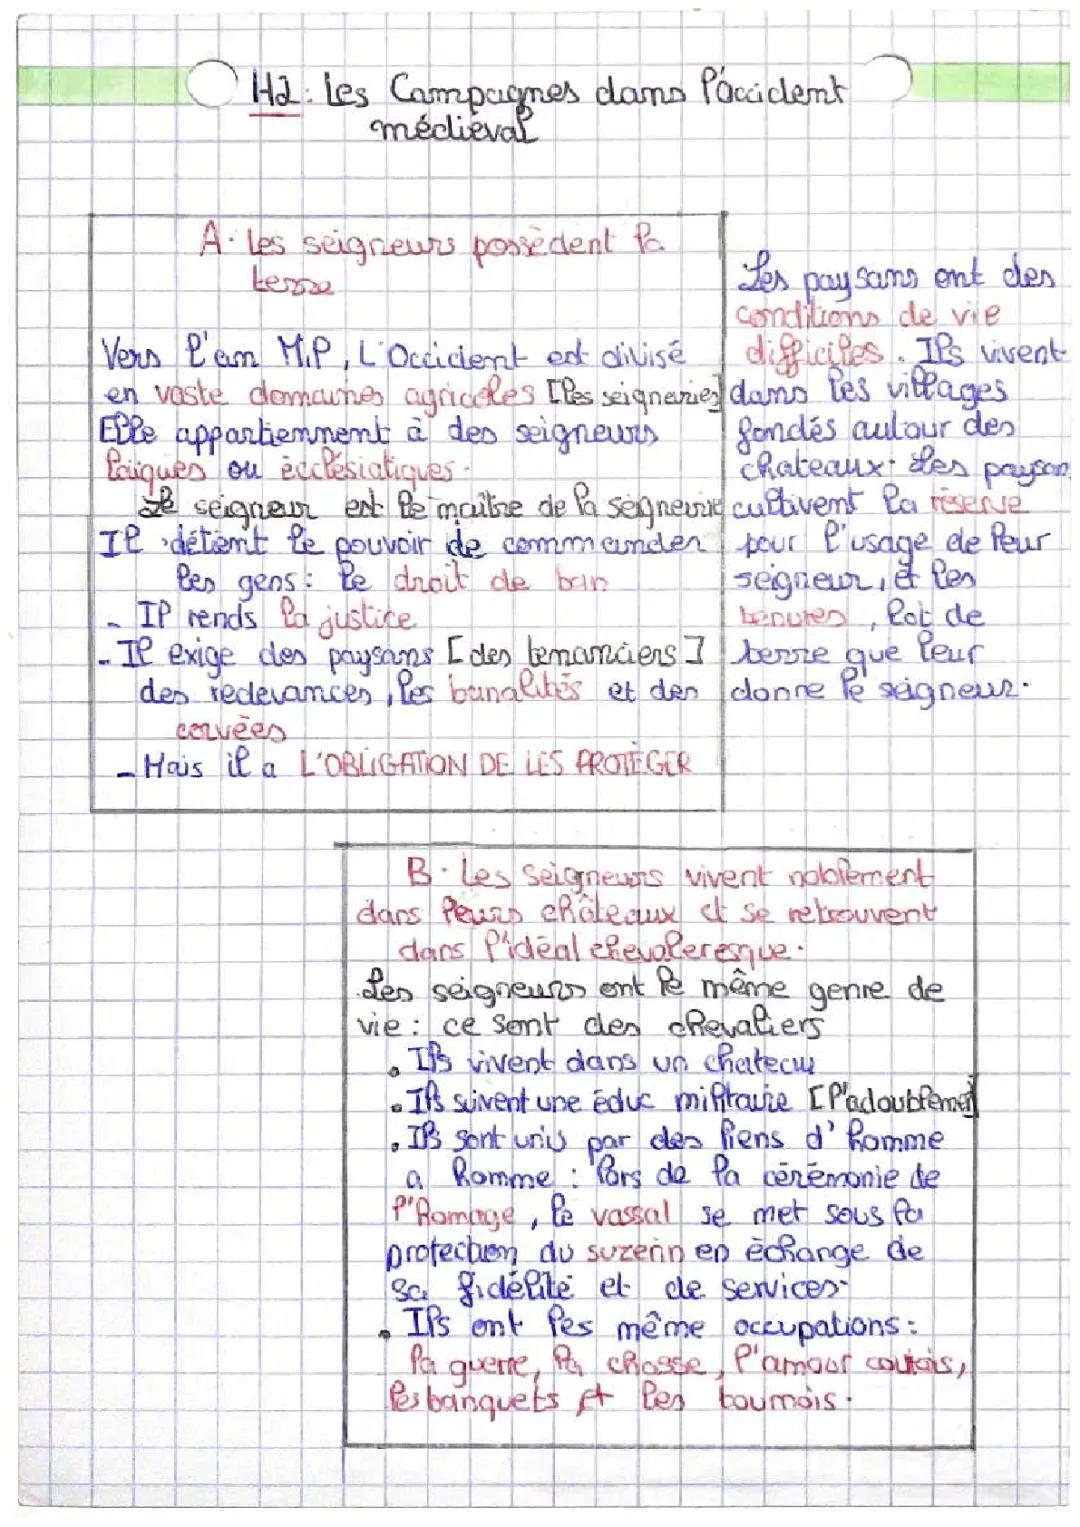 H2: Les Campagnes dans l'Occident
médiéval
A. Les seigneurs possèdent la
terre
Vers l'an M.P, L'Occident est divisé
en vaste domaines agricoles [les seigneuries]
Elle appartiennent à des seigneurs
laïques ou ècclésiatiques.
Le seigneur est le maître de la seigneurie
Il détient le pouvoir de commander
les gens : le droit de ban
- Il rends la justice
- Il exige des paysans [des tenanciers]
des redevances, les banalités et des
corvées
- Mais il a L'OBLIGATION DE LES PROTÉGER
Les paysans ont des
conditions de vie
difficiles. Ils vivent
dans les villages
fondés autour des
chateaux. Les paysan
cultivent la réserve
pour l'usage de leur
seigneur, et les
tenures, lot de
terre que leur
donne le seigneur.
B. Les Seigneurs vivent noblement
dans leurs châteaux et se retrouvent
dans l'idéal chevaleresque.
Les seigneurs ont le même genre de
vie : ce sont des chevaliers
. Ils vivent dans un chateau
. Ils suivent une éduc militaire [l'adoublement]
. Ils sont unis par des liens d'homme
a homme : lors de la cérémonie de
l'homage, le vassal se met sous la
protection du suzerin en échange de
sa fidélité et de services.
. Ils ont les même occupations :
la guerre, la chasse, l'amour coutois,
les banquets et les tournois.